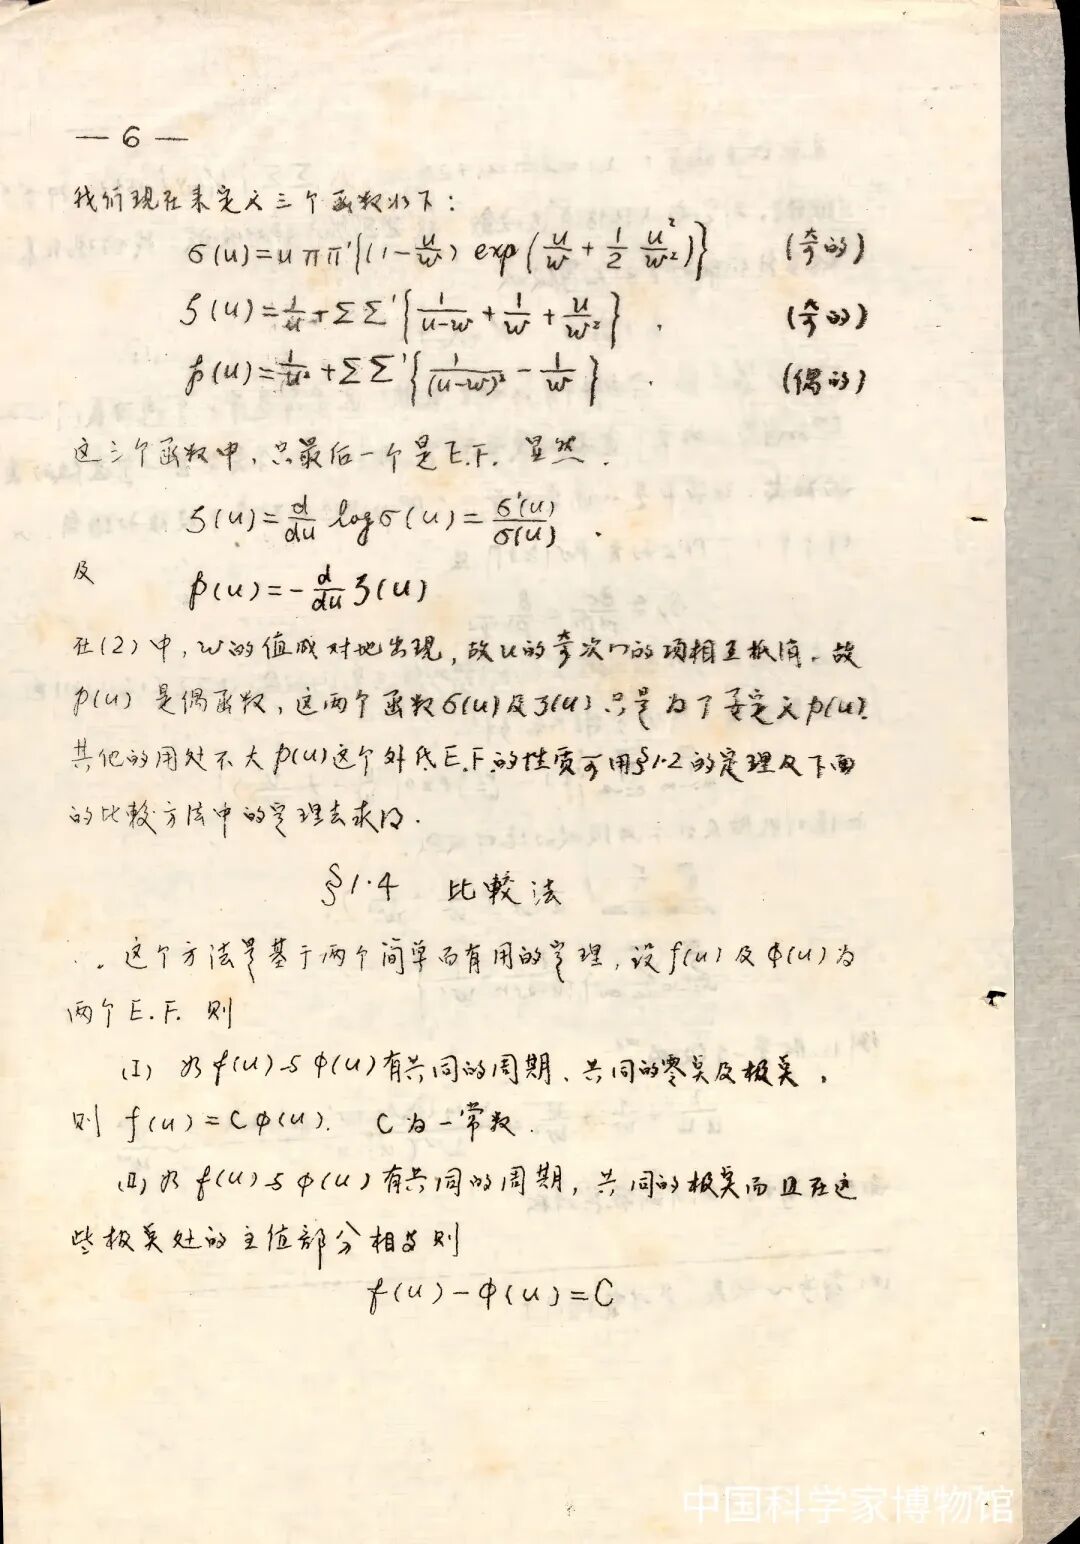 — 6 —
我们现在来定义三个函数如下：
σ(u)=u π π'{(1-u/w) exp(u/w + 1/2 u²/w²)} (奇的)
ζ(u)=1/u + Σ Σ'{1/(u-w) + 1/w + u/w²} , (奇的)
p(u)=1/u² + Σ Σ'{1/(u-w)² - 1/w} . (偶的)
这三个函数中，只最后一个是E.F. 显然.
ζ(u)=d/du log σ(u)=σ'(u)/σ(u) .
及
p(u)=-d/du ζ(u)
在(2)中，w的值成对地出现，故u的奇次的项相互抵消。故
p(u) 是偶函数，这两个函数σ(u)及ζ(u)只是为了要定义p(u).
其他的用处不大 p(u)这个外氏E.F.的性质可用§1·2的定理及下面
的比较方法中的定理去求得.
§1·4 比較法
这个方法是基于两个简单而有用的定理，设f(u)及φ(u)为
两个E.F. 则
(I) 如f(u)与φ(u)有共同的周期、共同的零点及极点，
则 f(u)=Cφ(u). C为一常数.
(II) 如f(u)与φ(u)有共同的周期，共同的极点而且在这
些极点处的主值部分相等则
f(u)-φ(u)=C
中国科学家博物馆